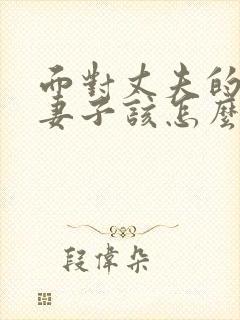 面對丈夫的
妻子該怎麼
段偉朵